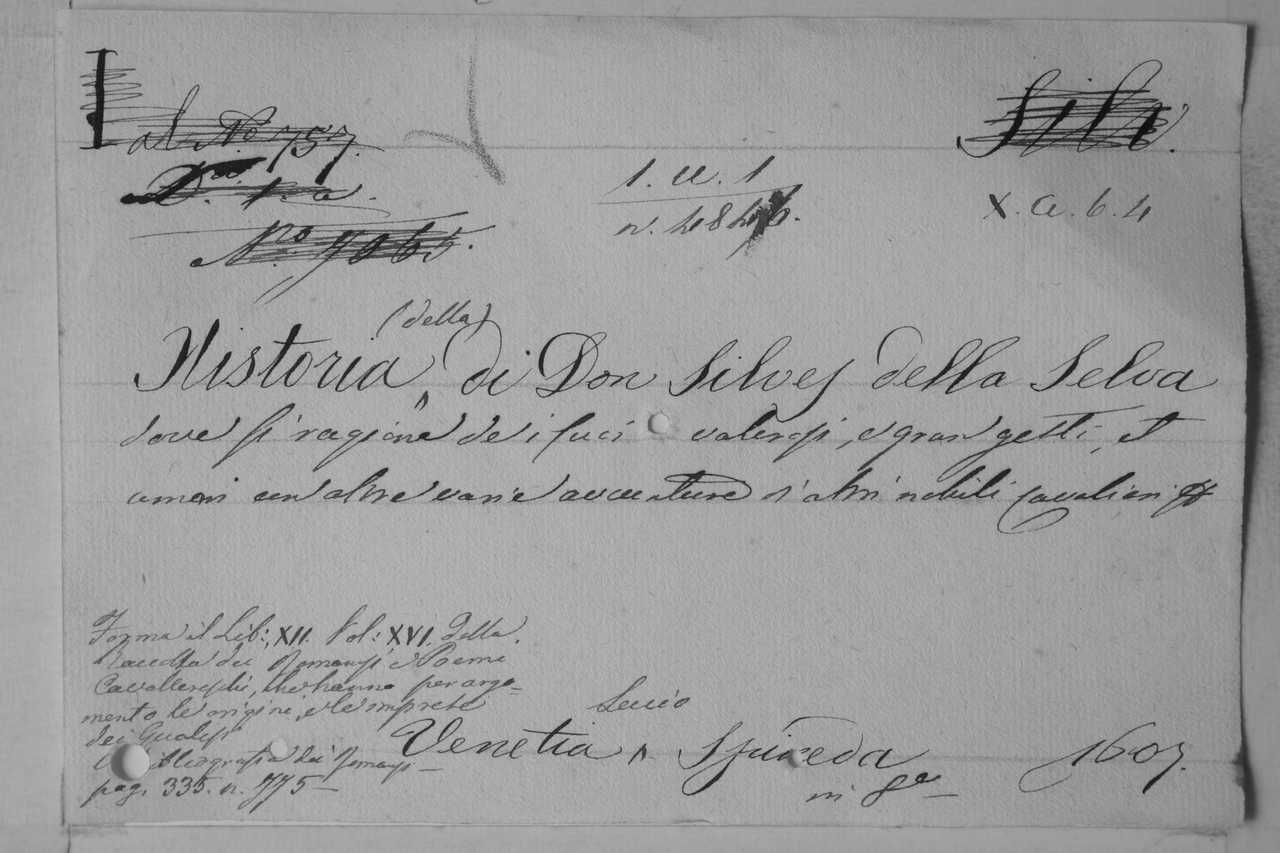 al N.º 757.
Silv.
D. 1. a.
1. a. 1
n. 4846.
X. a. 6. 4
N.ro 7065.
(della)
Historia di Don Silves della Selva
dove si ragiona de i suoi valorosi, e gran gesti, et
amori con altre varie avventure d'altri nobili Cavalieri
Forma il Lib: XII. Vol: XVI. della
Raccolta dei Romanzi e Poemi
Cavallereschi, che hanno per argo=
mento le origini, e le imprese
dei Gualesi
Bibliografia dei Romanzi
pag. 335. n. 775
Lucio
Venetia Spineda 1607.
in 8.º